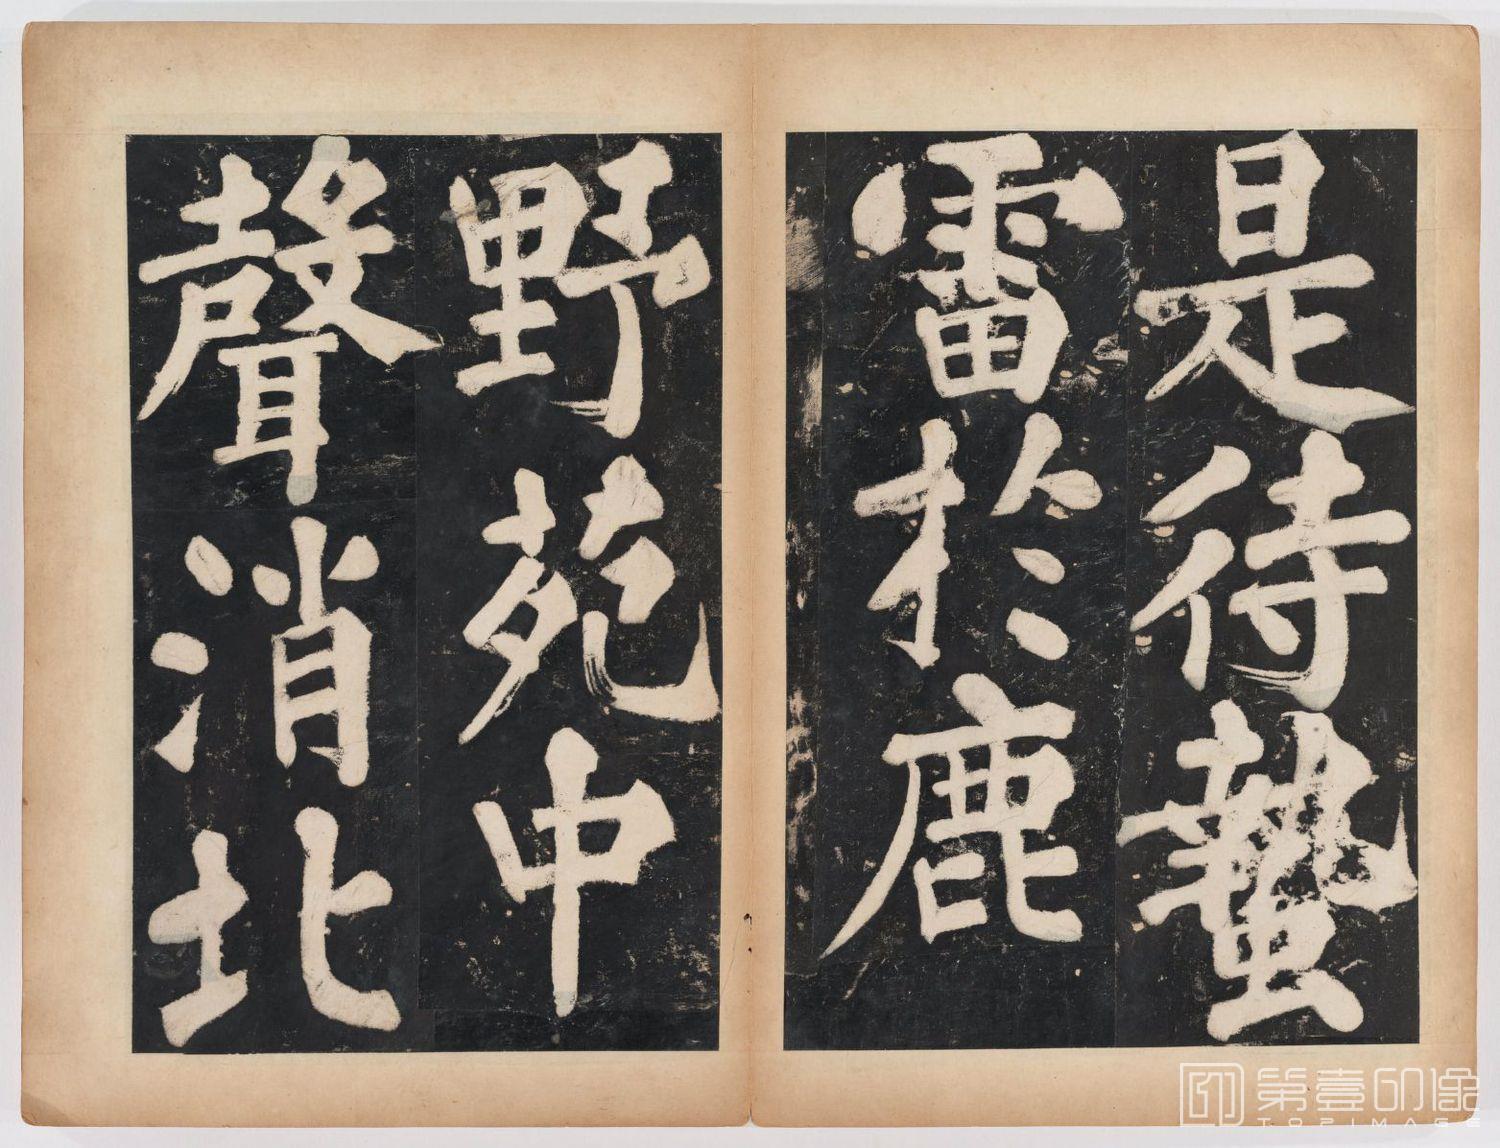 是待蟄
雷於鹿
野苑中
聲消北
第壹印像
TOPIMAGE